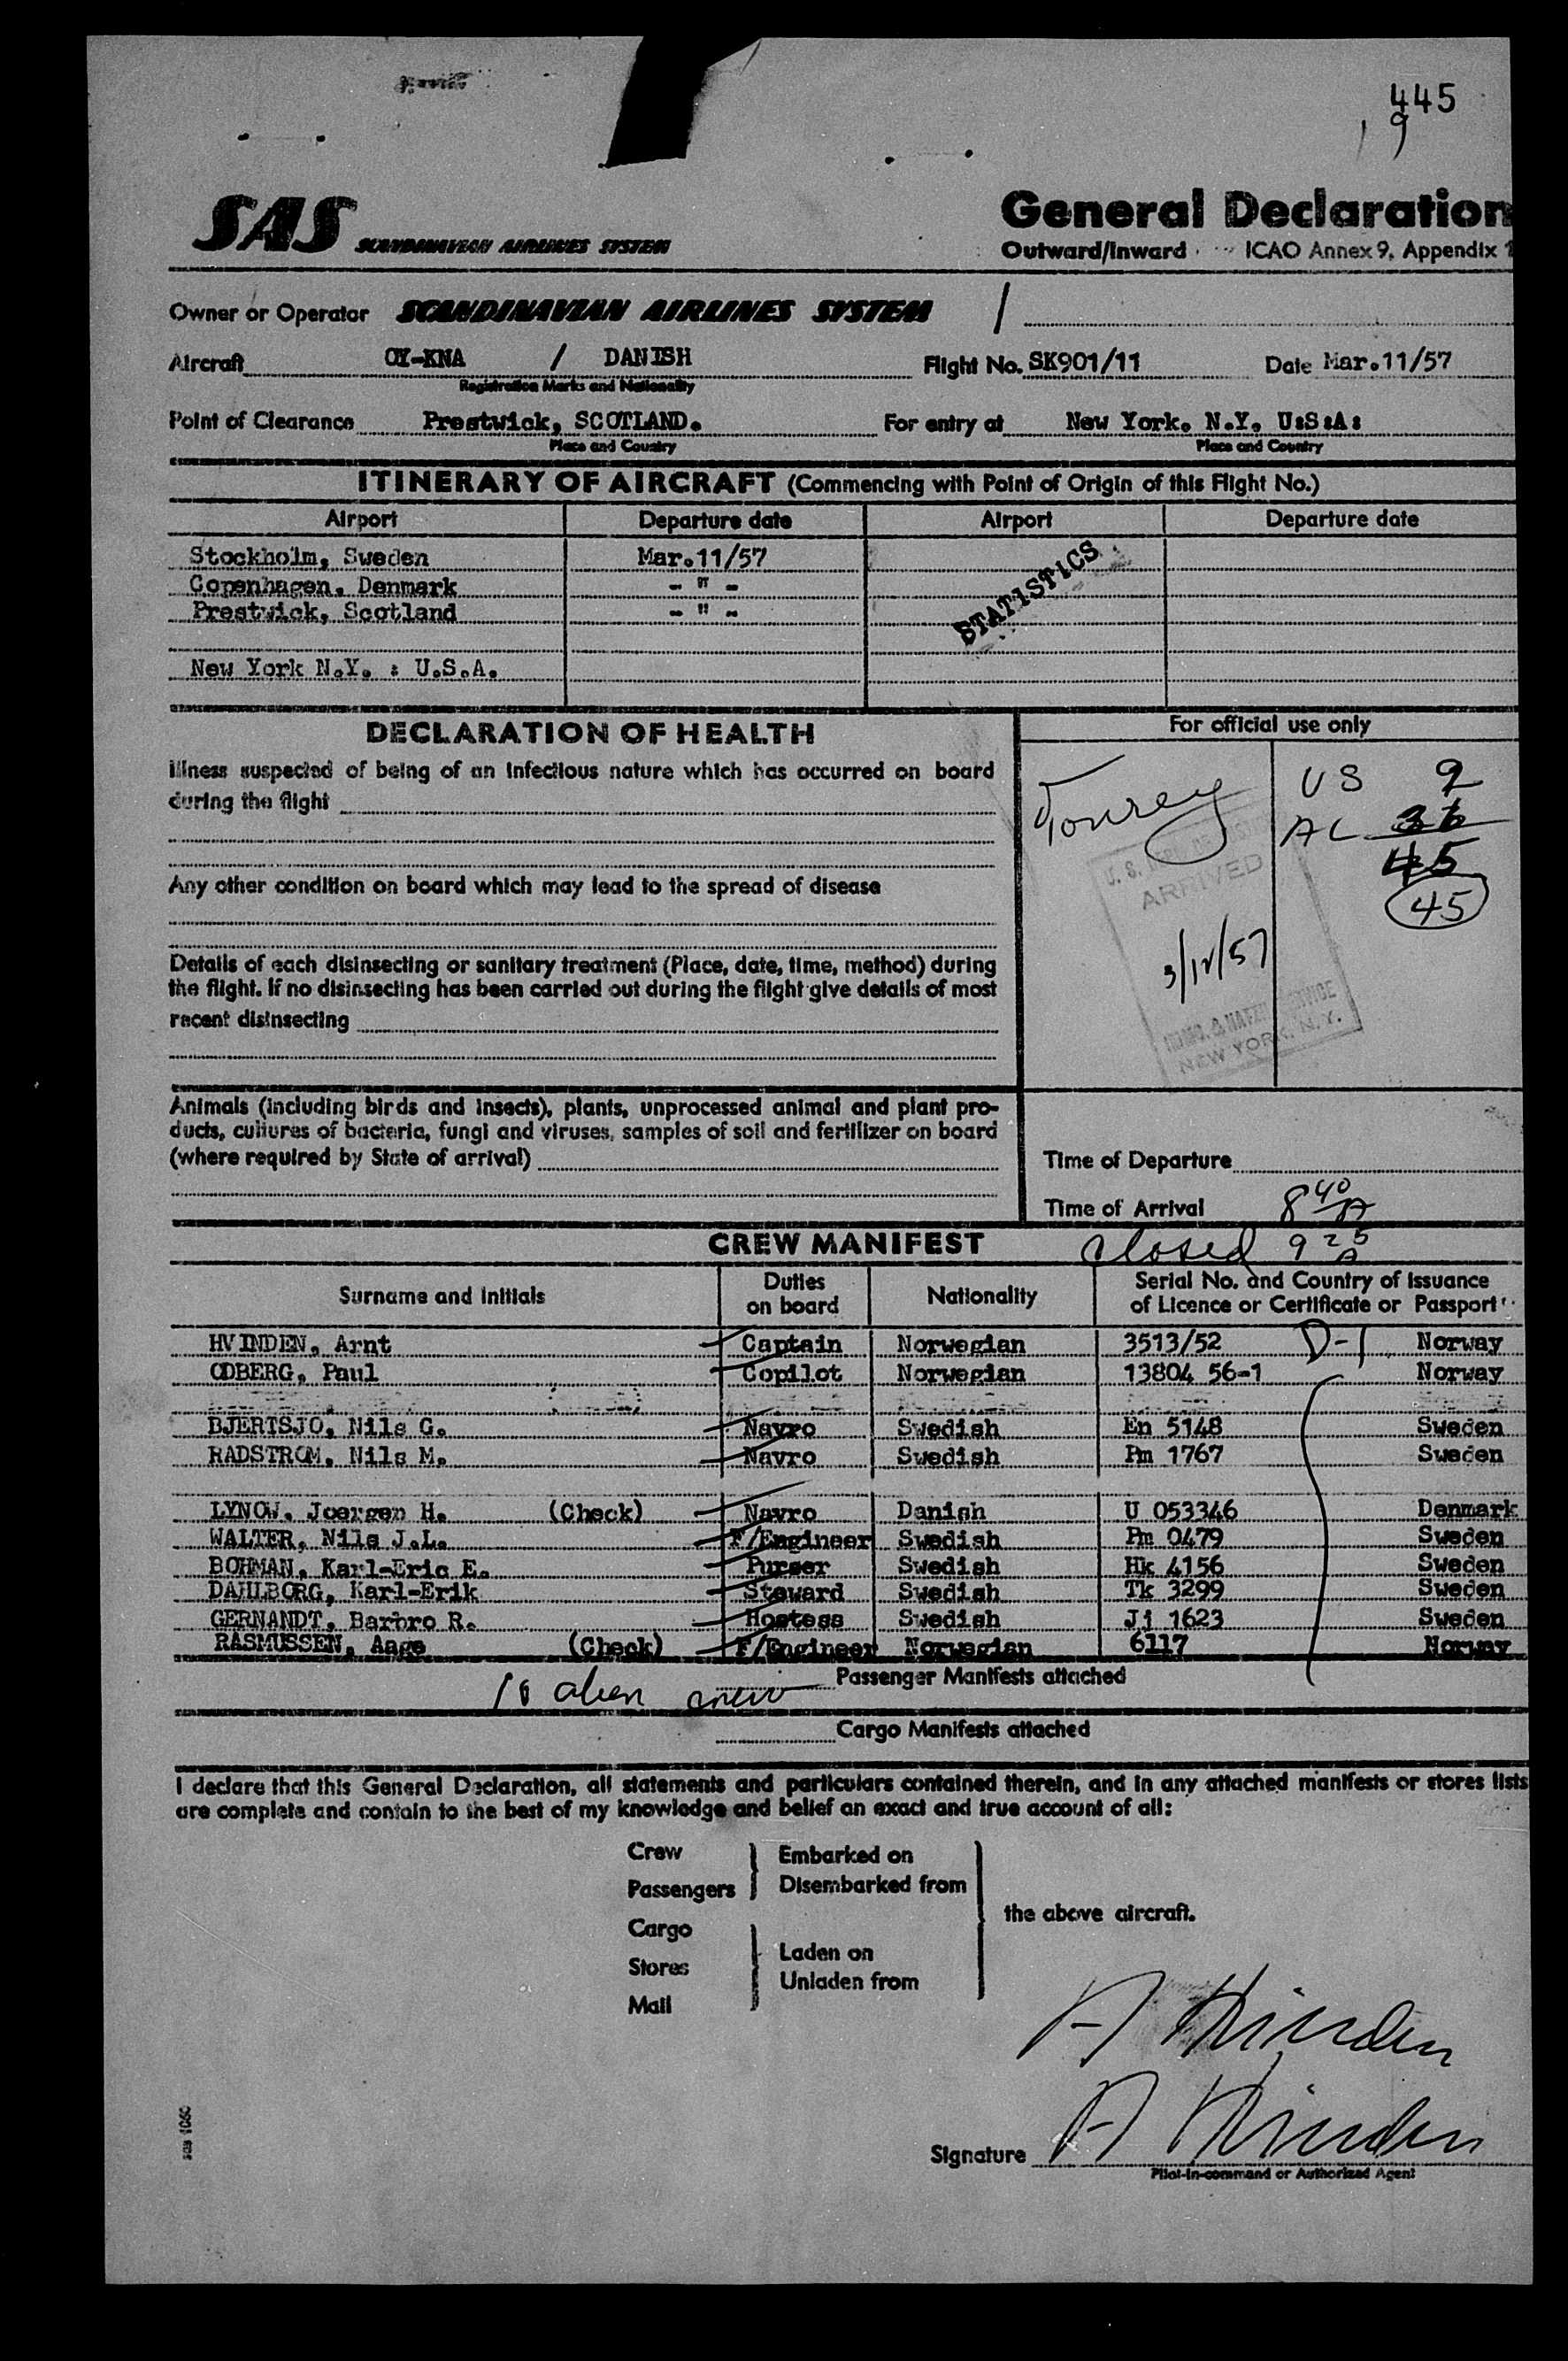 445
9
SAS SCANDINAVIAN AIRLINES SYSTEM
General Declaration
Outward/Inward ICAO Annex 9, Appendix 1
Owner or Operator SCANDINAVIAN AIRLINES SYSTEM /
Aircraft OY-KNA / DANISH Flight No. SK901/11 Date Mar.11/57
Registration Marks and Nationality
Point of Clearance Prestwick, SCOTLAND. For entry at New York. N.Y. U:S:A:
Place and Country Place and Country
ITINERARY OF AIRCRAFT (Commencing with Point of Origin of this Flight No.)
Airport Departure date Airport Departure date
Stockholm, Sweden Mar.11/57
Copenhagen, Denmark - " -
Prestwick, Scotland - " -
STATISTICS
New York N.Y. : U.S.A.
DECLARATION OF HEALTH
For official use only
Illness suspected of being of an infectious nature which has occurred on board
during the flight
US 9
AL 36
45
45
Any other condition on board which may lead to the spread of disease
ARRIVED
3/12/57
NEW YORK, N.Y.
Details of each disinsecting or sanitary treatment (Place, date, time, method) during
the flight. If no disinsecting has been carried out during the flight give details of most
recent disinsecting
Animals (including birds and insects), plants, unprocessed animal and plant pro-
ducts, cultures of bacteria, fungi and viruses, samples of soil and fertilizer on board
(where required by State of arrival)
Time of Departure
Time of Arrival 8 40 A
CREW MANIFEST
Closed 9 25 A
Surname and initials Duties on board Nationality Serial No. and Country of Issuance of Licence or Certificate or Passport
HVINDEN, Arnt Captain Norwegian 3513/52 D-1 Norway
ODBERG, Paul Copilot Norwegian 13804 56-1 Norway
BJERTSJO, Nils G. Navro Swedish En 5148 Sweden
RADSTROM, Nils M. Navro Swedish Pm 1767 Sweden
LYNOW, Joergen H. (Check) Navro Danish U 053346 Denmark
WALTER, Nils J.L. F/Engineer Swedish Pm 0479 Sweden
BOHMAN, Karl-Eric E. Purser Swedish Hk 4156 Sweden
DAHLBORG, Karl-Erik Steward Swedish Tk 3299 Sweden
GERNANDT, Barbro R. Hostess Swedish Jj 1623 Sweden
RASMUSSEN, Aage (Check) F/Engineer Norwegian 6117 Norway
10 alien crew
Passenger Manifests attached
Cargo Manifests attached
I declare that this General Declaration, all statements and particulars contained therein, and in any attached manifests or stores lists
are complete and contain to the best of my knowledge and belief an exact and true account of all:
Crew
Passengers
Embarked on
Disembarked from
Cargo
Stores
Mail
Laden on
Unladen from
the above aircraft.
A Hvinden
Signature A Hvinden
Pilot-in-command or Authorized Agent